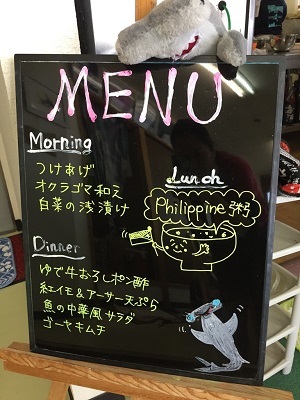 MENU
Morning
つけあげ
オクラゴマ和え
白菜の浅漬け
Lunch
Philippine粥
Dinner
ゆで牛おろしポン酢
紅イモ&アーサー天ぷら
魚の中華風サラダ
ゴーヤキムチ